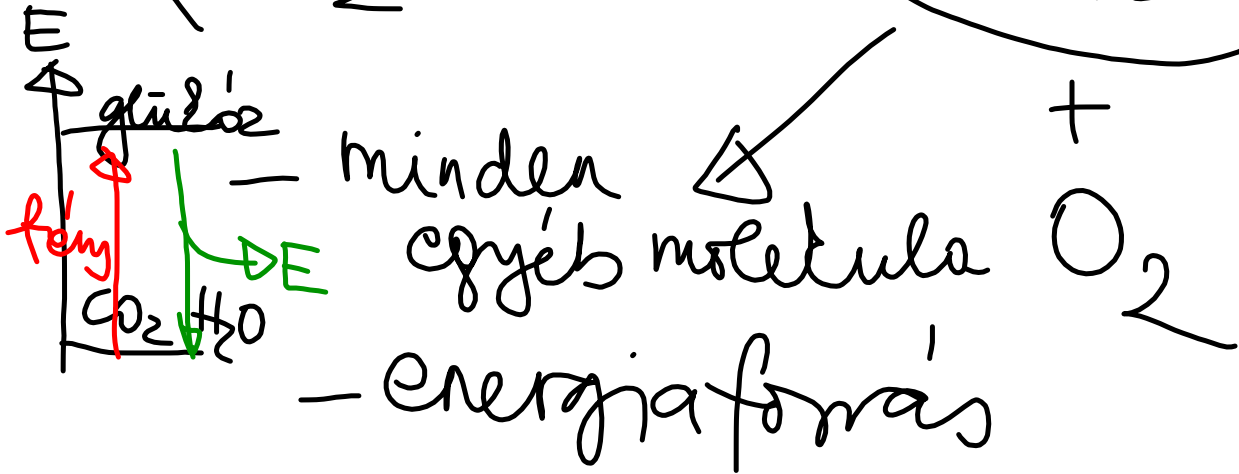 E
glükóz
fény
E
CO2 H2O
– minden
egyéb molekula
– energiaforrás
+
O2